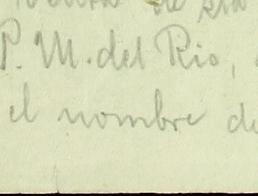 de
P. M. del Rio,
el nombre de